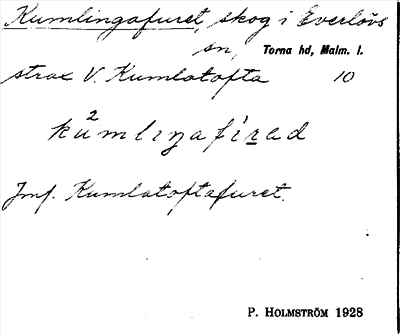 Kumlingafuret, skog i Everlövs
sn, Torna hd, Malm. l.
strax V. Kumlatofta 10
kŭ²mlıŋafı̀ʀad
Jmf. Kumlatoftafuret.
P. HOLMSTRÖM 1928